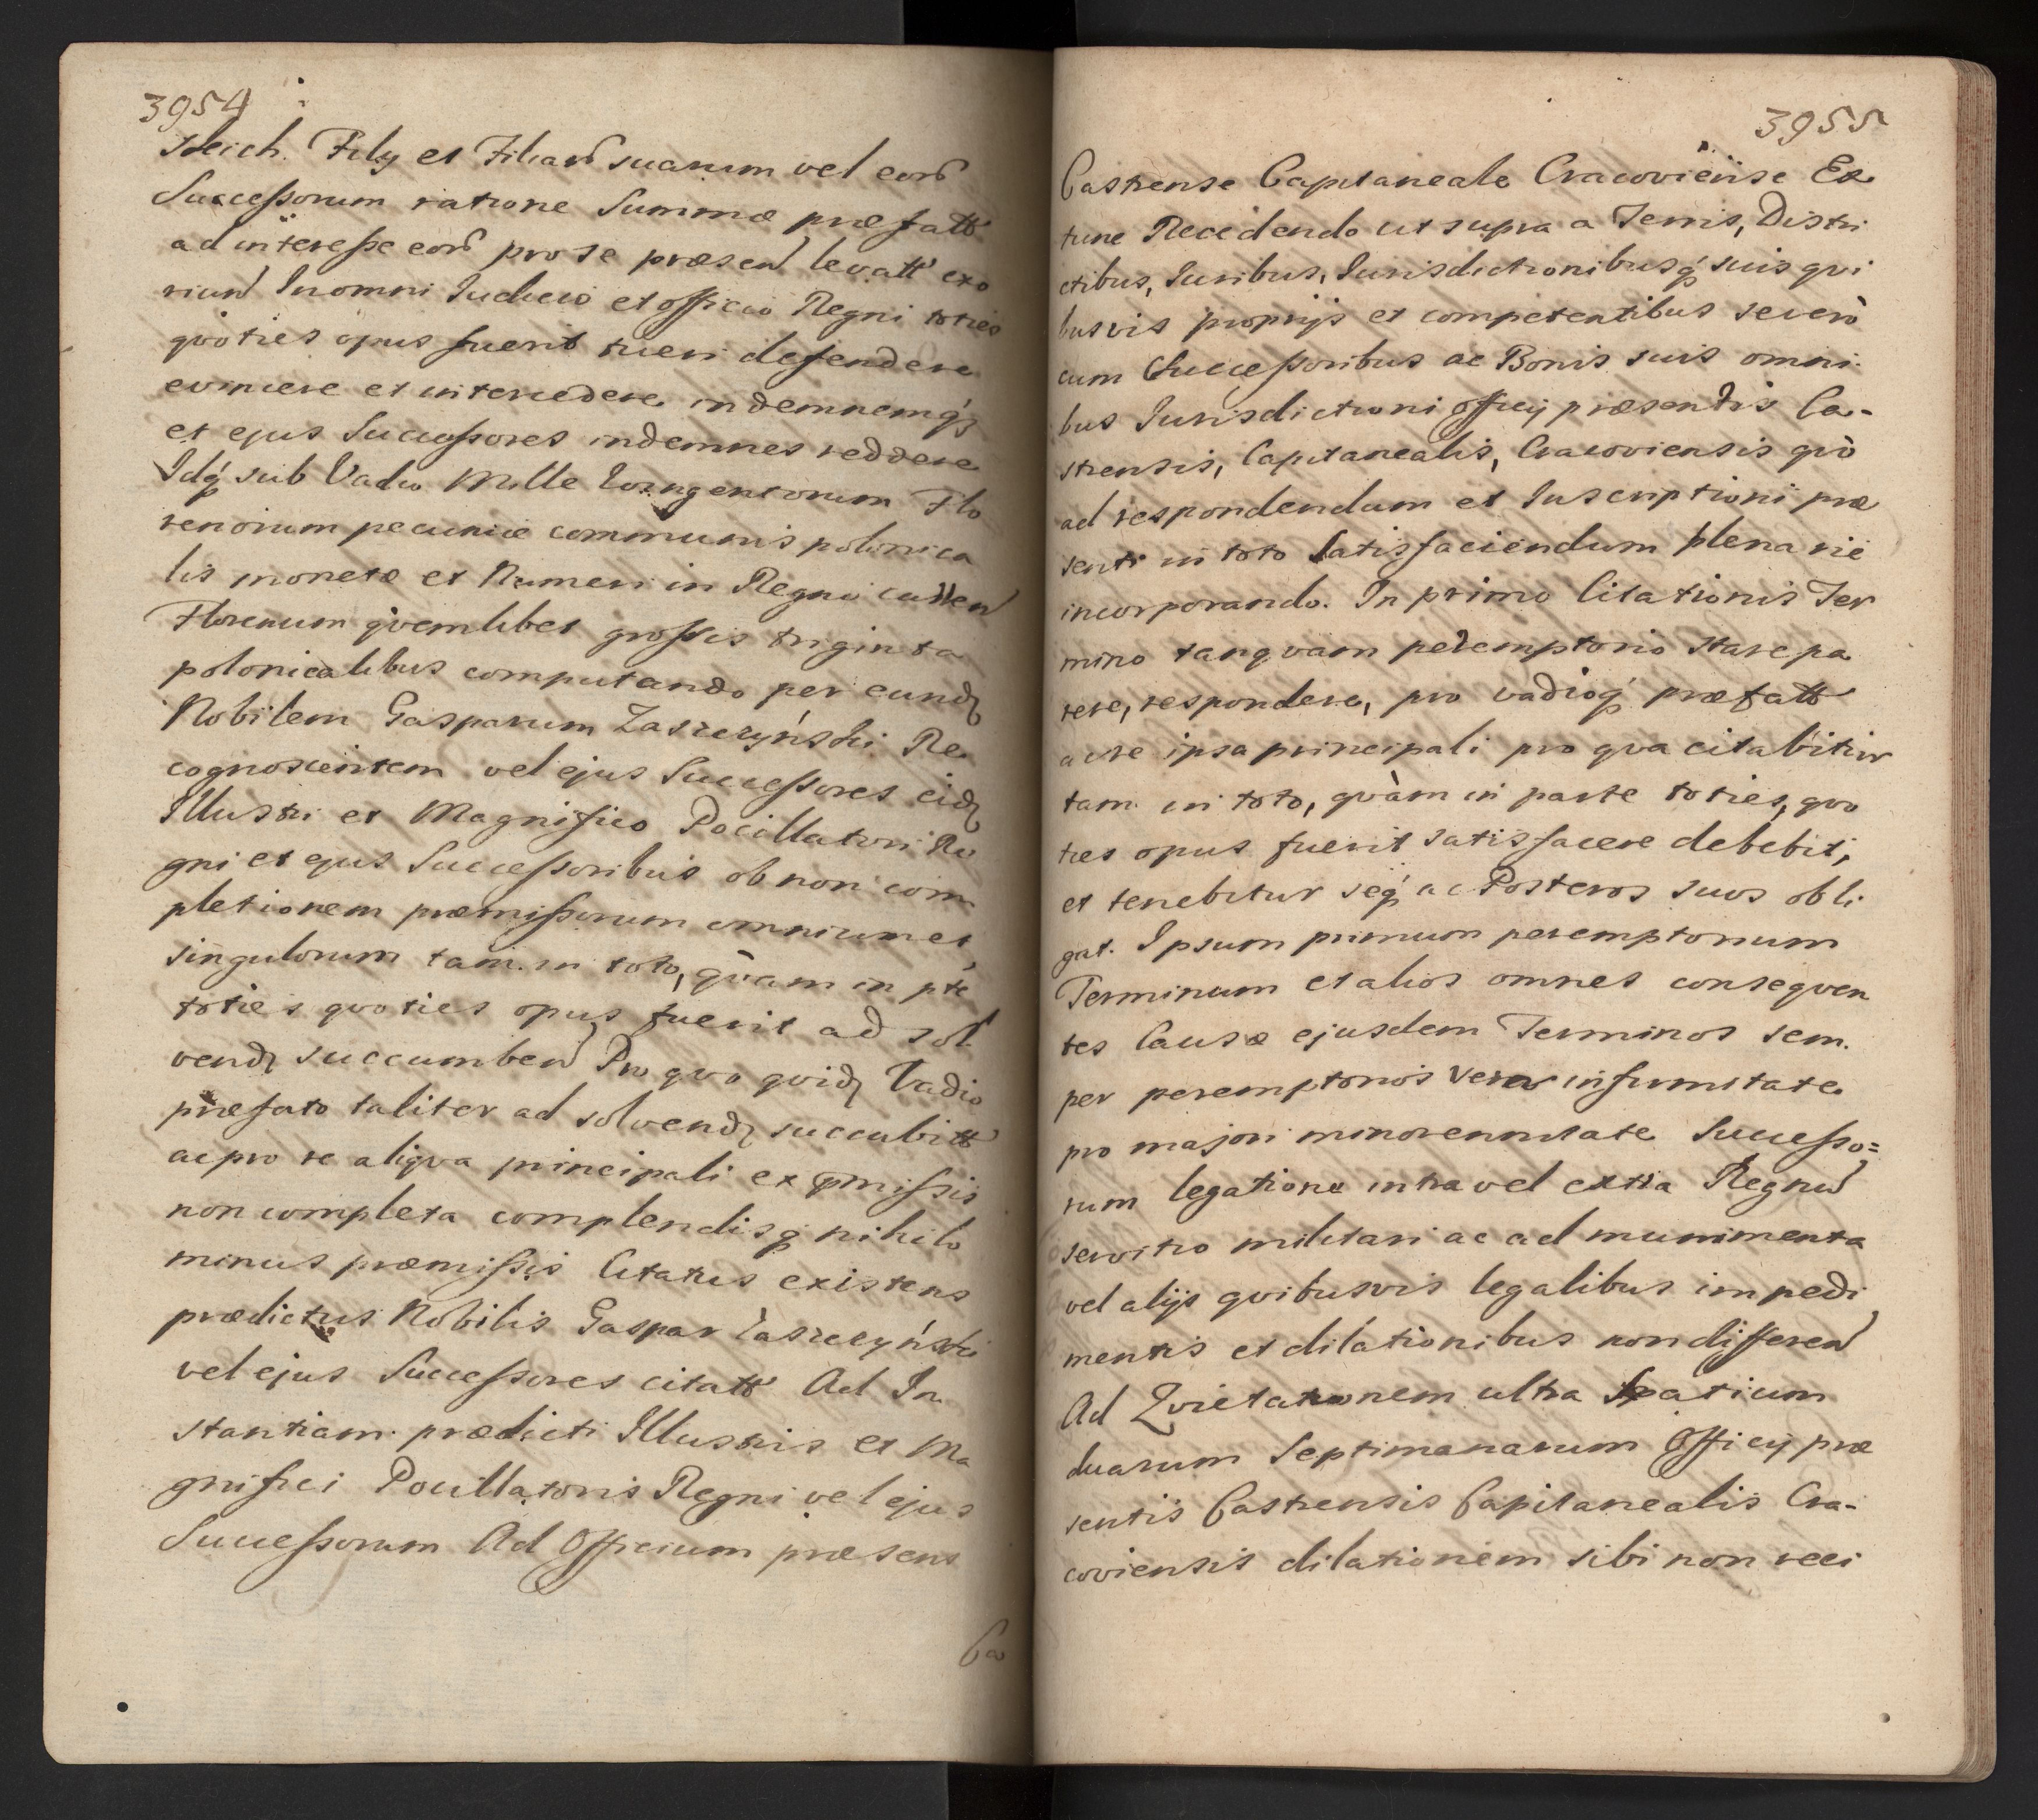 3954
Filij et Filiarū suarum vel eorū
Successorum ratione Summæ præfatt
ad interesse eorū pro se præsen levatt exo
riun In omni Judicio et officio Regni toties
qvoties opus fuerit tueri defendere
evincere et intercedere indemnemq́3
et ejus Successores indemnes reddere
Idq́ sub Vadio Mille Flo
renorum pecuniæ communis polonica
lis monetæ et Numeri in Regno curren
Florenum qvemlibet grossis triginta
polonicalibus computando per eund
Nobilem Gasparum Zaszczyński Re
cognoscentem vel ejus Successores eid
Illustri et Magnifico Pocillatori Re
gni et ejus Successoribus ob non com
pletionem præmissorum omnium et
singulorum tam in toto, qvàm in pte
toties qvoties opus fuerit ad sol
vend succumben Pro qvo qvid Vadio
præfato taliter ad solvend succubitt
ac pro re aliqva principali ex pmissis
non completa complendisq́ nihilo
minus præmissis Citatus existens
prædictus Nobilis Gaspar Zaszczyński
vel ejus Successores citatt Ad In
stantiam prædicti Illustris et Ma
gnifici Pocillatoris Regni vel ejus
Successorum Ad Officium præsens
Ca
3955
Castrense Capitaneale Cracoviense Ex
tunc Recedendo ut supra a Terris, Distri
ctibus, Juribus, Jurisdictionibusq́ suis qvi
busvis proprijs et competentibus severò
cum Successoribus ac Bonis suis omni
bus Jurisdictioni Officij præsentis Ca-
strensis, Capitanealis, Cracoviensis qvò
ad respondendum et Inscriptioni præ
senti in toto satisfaciendum plenarie
incorporando. In primo Citationis Ter
mino tanqvam peremptorio stare pa
rere, respondere, pro vadioq́ præfatt
ac re ipsa principali pro qva citabitur
tam in toto, qvàm in parte toties, qvo
ties opus fuerit satisfacere debebit,
et tenebitur seq́ ac Posteros suos obli
gat. Ipsum primum peremptorium
Terminum et alios omnes conseqven
tes Causæ ejusdem Terminos sem.
per peremptorios vera infirmitate
pro majori minorennitate Successo=
rum legatione intra vel extra Regnū
servitio militari ac ad munimenta
vel alijs qvibusvis legalibus impedi
mentis et dilationibus non differen
Ad Qvietationem ultra Spatium
duarum Septimanarum Officij præ
sentis Castrensis Capitanealis Cra-
coviensis dilationem sibi non reci